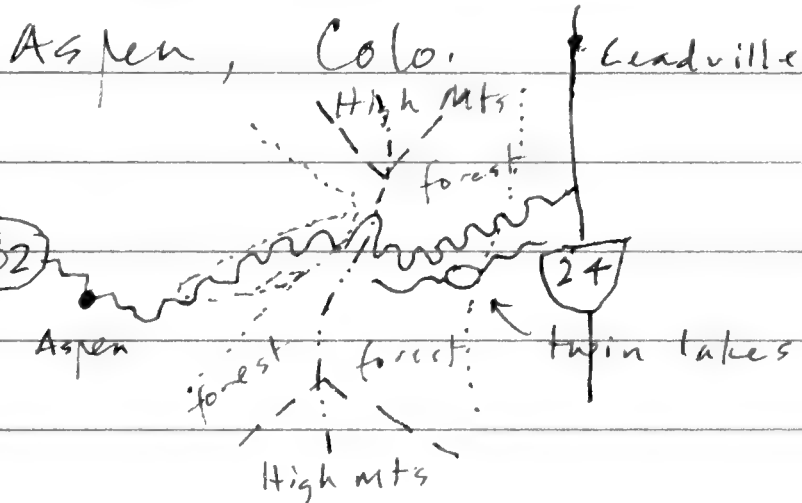 Aspen, Colo.
Leadville
High Mts
forest
24
Aspen
forest
forest
twin lakes
High mts